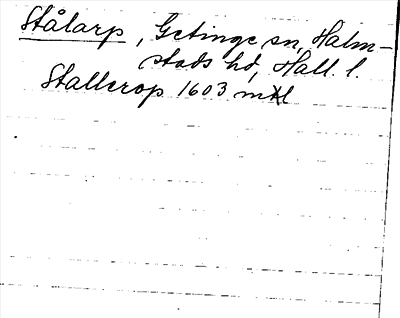 Stålarp, Getinge sn, Halm-
stads hd, Hall. l.
Stallerop 1603 mtl